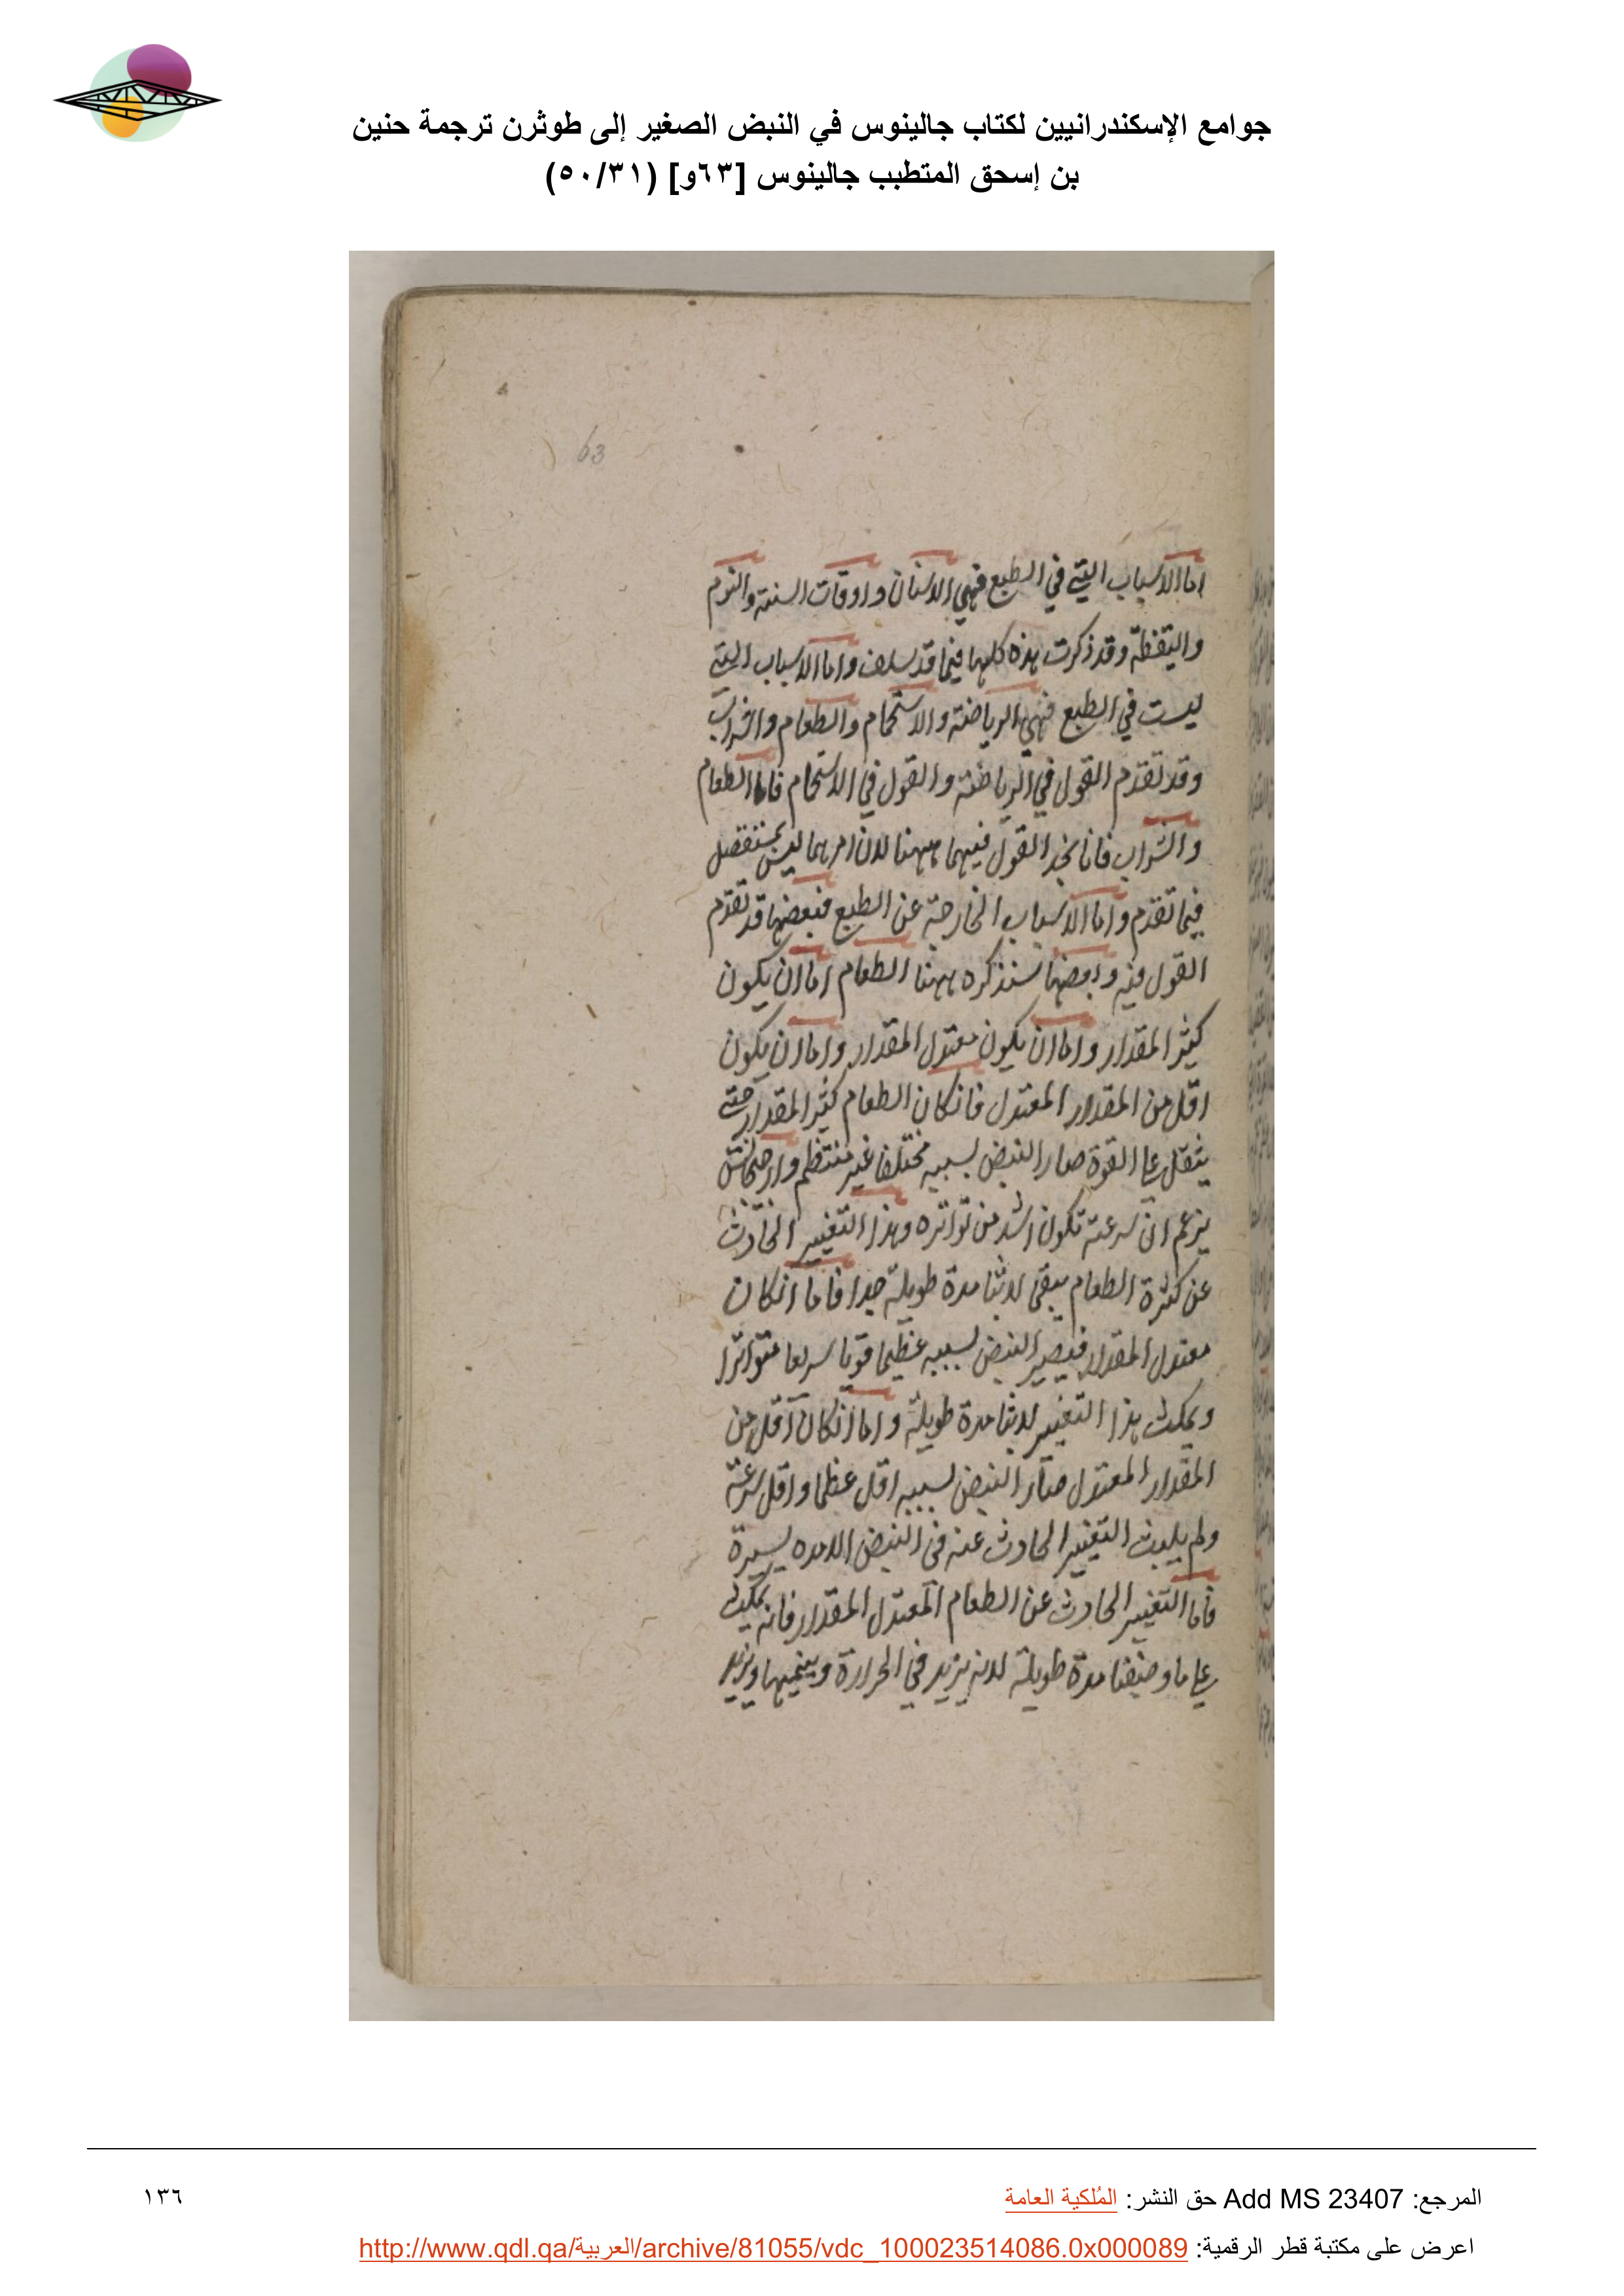 جوامع الإسكندرانيين لكتاب جالينوس في النبض الصغير إلى طوثرن ترجمة حنين
بن إسحق المتطبب جالينوس [٦٣و] (٥٠/٣١)
63
اما الاسباب التي في الطبع فهي الاسنان واوقات السنة والنوم
واليقظة وقد ذكرت هذه كلها فيما قد سلف واما الاسباب التي
ليست في الطبع فهي الرياضة والاستحمام والطعام والشراب
وقد تقدم القول في الرياضة والقول في الاستحمام فاما الطعام
والشراب فانا نجد القول فيهما ههنا لان امرهما ليس
فيما تقدم واما الاسباب الخارجة عن الطبع فبعضها قد تقدم
القول فيه وبعضها سنذكره ههنا الطعام اما ان يكون
كثير المقدار واما ان يكون معتدل المقدار واما ان يكون
اقل من المقدار المعتدل فان كان الطعام كثير المقدار حتى
يثقل على القوة صار النبض بسببه مختلفا غير منتظم وارخيجانس
يزعم ان سرعته تكون اشد من تواتره وهذا التغيير الحادث
عن كثرة الطعام يبقى لابثا مدة طويلة جدا فاما ان كان
معتدل المقدار فيصير النبض بسببه عظيما قويا سريعا متواترا
ويمكث هذا التغيير لابثا مدة طويلة واما ان كان اقل من
المقدار المعتدل صار النبض بسببه اقل عظما واقل سرعة
ولم يلبث التغيير الحادث عنه في النبض الا مده يسيرة
فاما التغيير الحادث عن الطعام المعتدل المقدار فانه يمكث
على ما وصفنا مدة طويلة لانه يزيد في الحرارة وينميها ويزيد
المرجع: Add MS 23407 حق النشر: المُلكية العامة
١٣٦
اعرض على مكتبة قطر الرقمية: http://www.qdl.qa/العربية/archive/81055/vdc_100023514086.0x000089